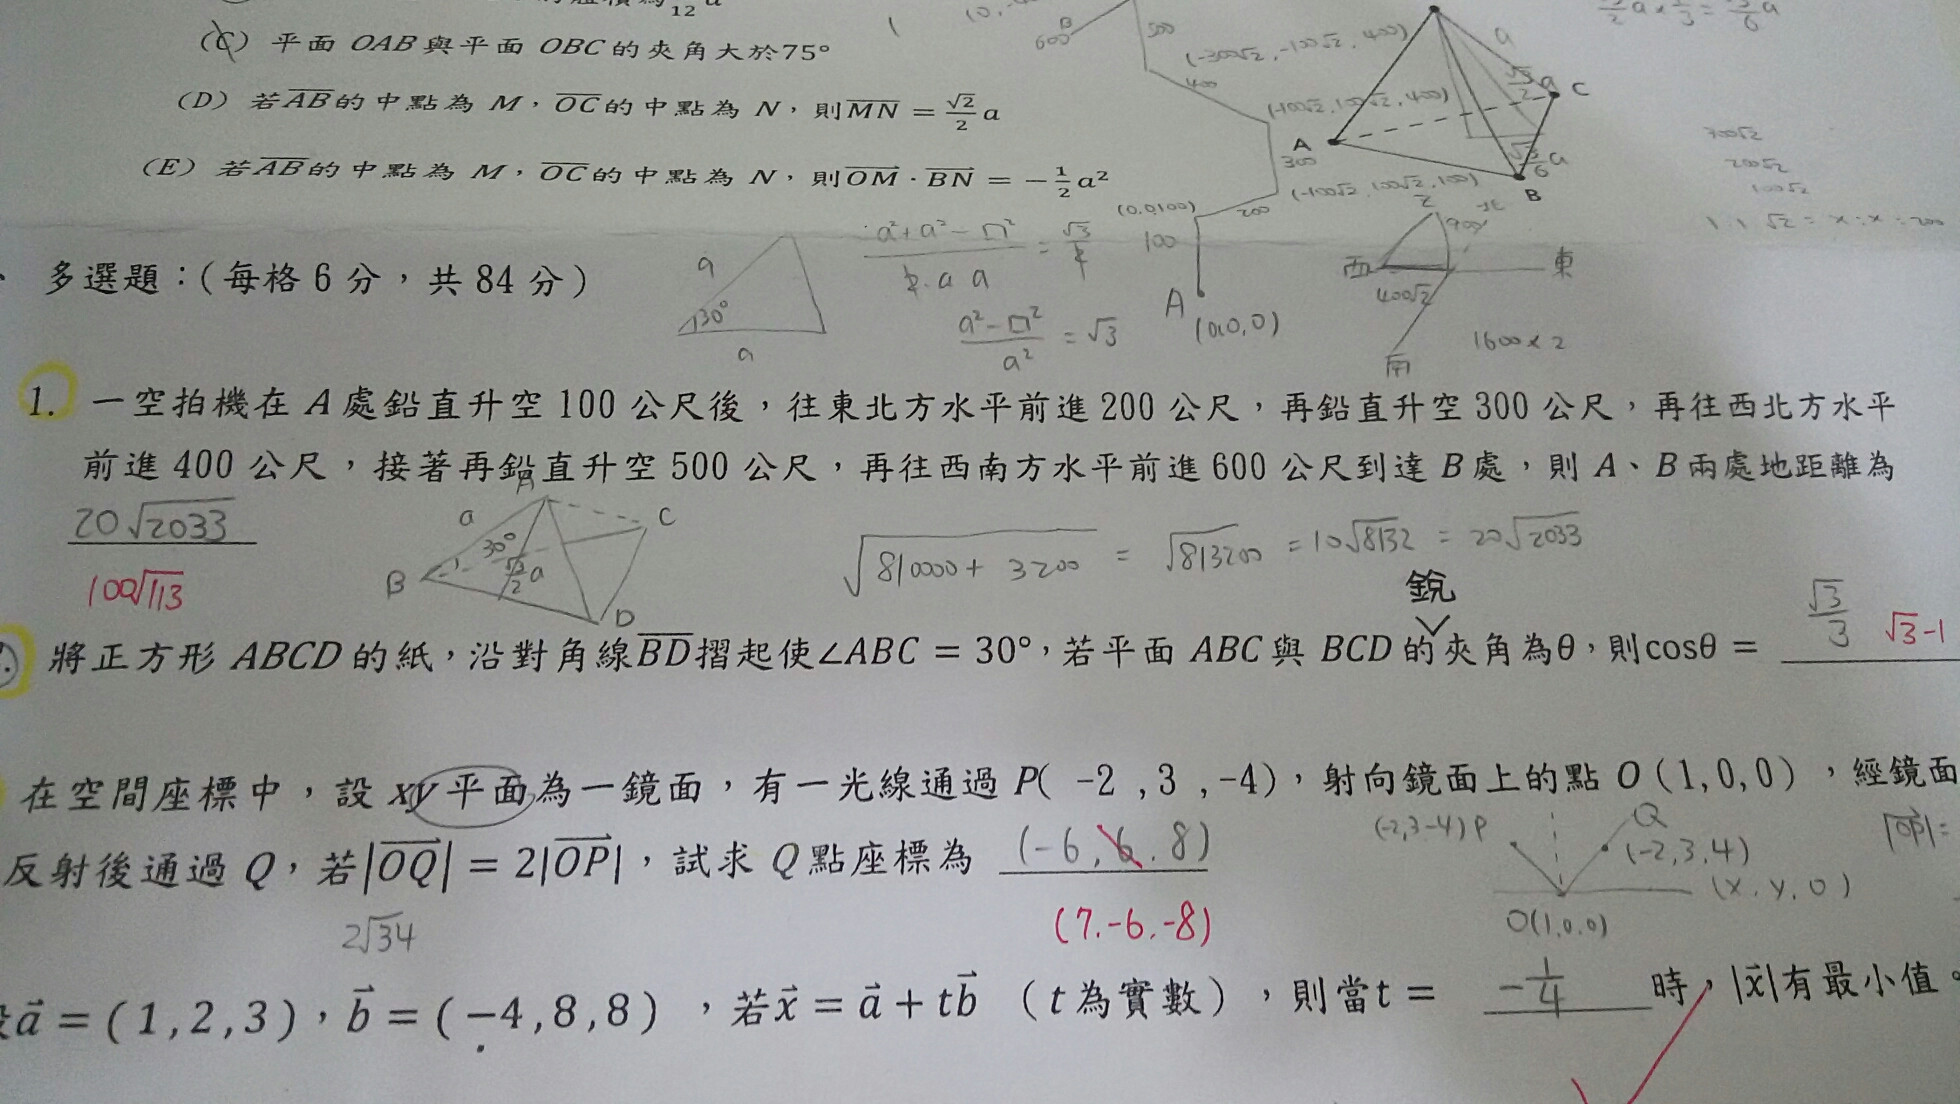 (C) 平面 OAB 與平面 OBC 的夾角大於75°
(D) 若AB的中點為 M，OC的中點為 N，則MN = √2/2 a
(E) 若AB的中點為 M，OC的中點為 N，則OM · BN = −1/2 a²
600
B
500
400
(-300√2, -100√2, 400)
(-100√2, 100√2, 400)
(-100√2, 100√2, 100)
(0,0,100)
200
100
A
(0,0,0)
a
C
√3/2 a
A
300
√3/6 a
B
200√2
100√2
1 : 1 : √2 = x : x : 200
西
東
南
400√2
1600×2
多選題：(每格 6 分，共 84 分)
a
30°
a
a²+a²−□² / 2·a·a = √3/2
a²−□² / a² = √3
1. 一空拍機在 A 處鉛直升空 100 公尺後，往東北方水平前進 200 公尺，再鉛直升空 300 公尺，再往西北方水平
前進 400 公尺，接著再鉛直升空 500 公尺，再往西南方水平前進 600 公尺到達 B 處，則 A、B 兩處地距離為
20√2033
100√113
A
a
30°
√3/2 a
B
C
D
√810000+3200 = √813200 = 10√8132 = 20√2033
銳
將正方形 ABCD 的紙，沿對角線BD摺起使∠ABC = 30°，若平面 ABC 與 BCD 的夾角為θ，則cosθ =
√3/3
√3-1
在空間座標中，設 xy 平面為一鏡面，有一光線通過 P( -2 , 3 , -4)，射向鏡面上的點 O (1, 0, 0) ，經鏡面
反射後通過 Q，若|OQ| = 2|OP|，試求 Q 點座標為 (-6, 6, 8)
(7,-6,-8)
2√34
(-2,3-4) P
Q
(-2,3,4)
(x, y, 0)
O(1,0,0)
|OP|=
a = (1, 2, 3)，b = (−4, 8, 8) ，若x = a + tb （t 為實數），則當t = -1/4 時，|x|有最小值。